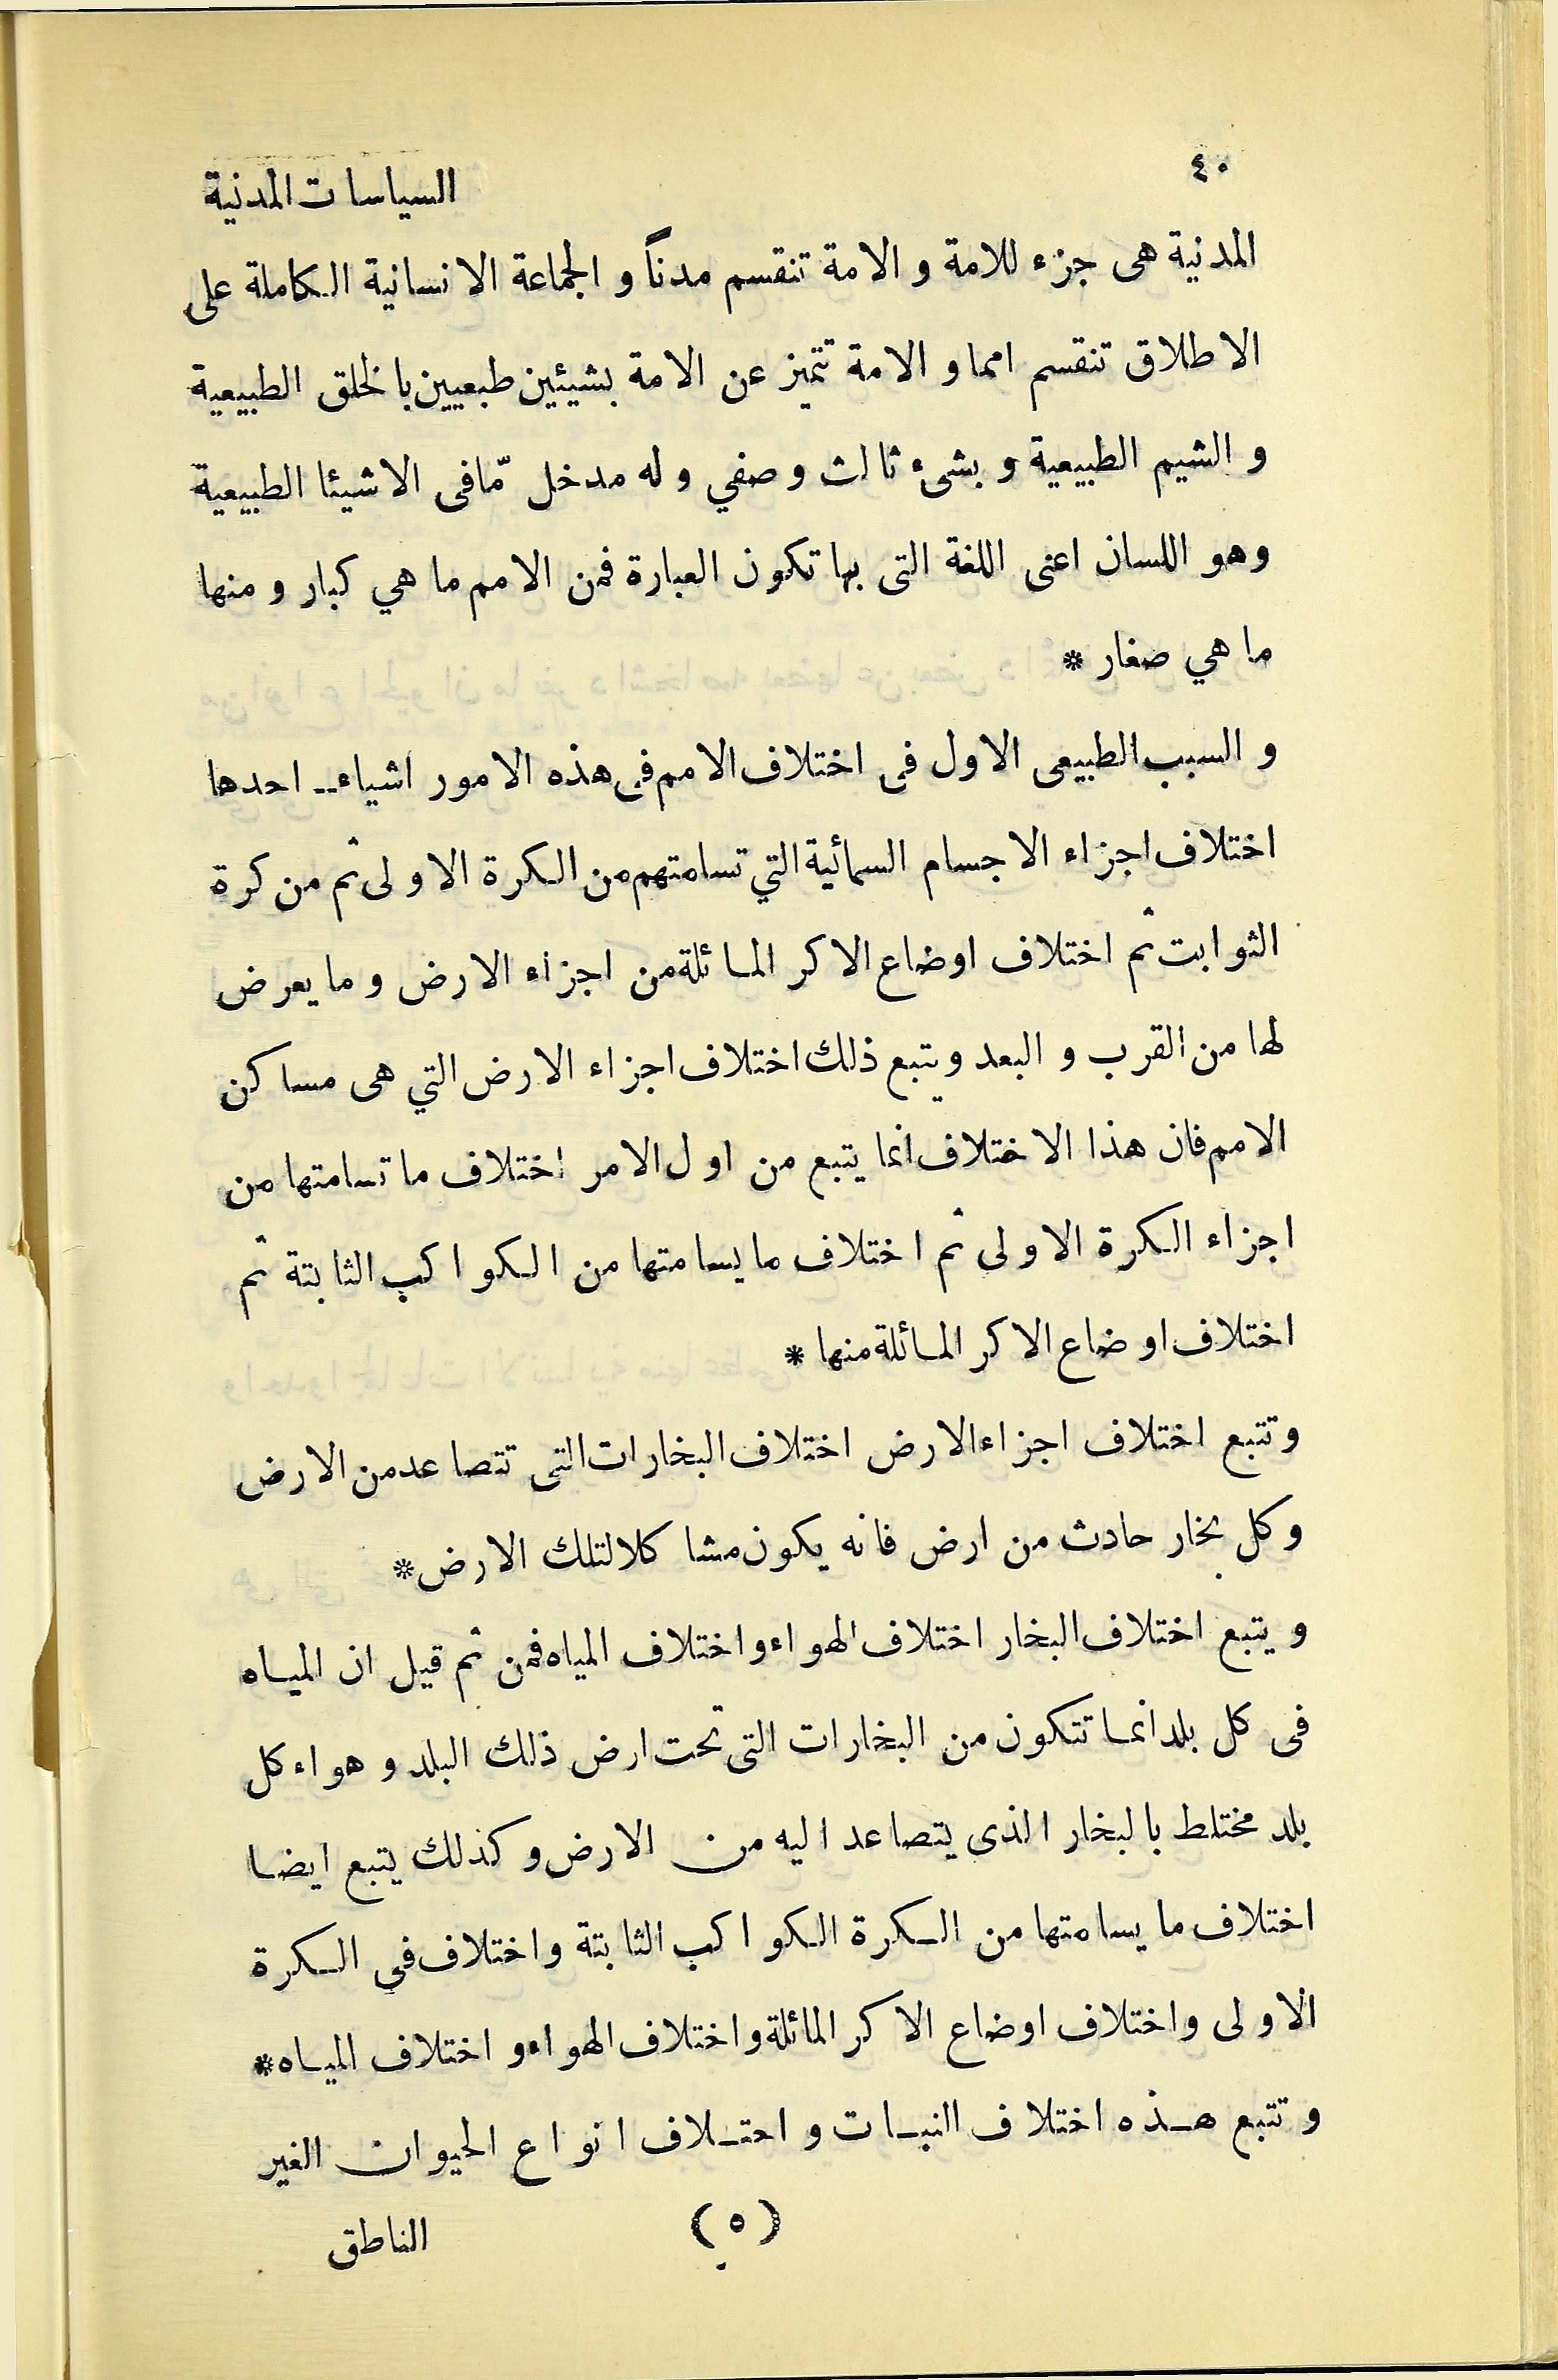 ٤٠
السياسات المدنية
المدنية هى جزء للامة و الامة تنقسم مدناً و الجماعة الانسانية الكاملة على
الاطلاق تنقسم امما و الامة تتميز عن الامة بشيئين طبعيين بالخلق الطبيعية
و الشيم الطبيعية و بشىء ثالث وصفي و له مدخل مّا فى الاشيئا الطبيعية
وهو اللسان اعنى اللغة التى بها تكون العبارة فمن الامم ما هي كبار و منها
ما هي صغار *
و السبب الطبيعى الاول فى اختلاف الامم فى هذه الامور اشياء ــ احدها
اختلاف اجزاء الاجسام السمائية التي تسامتهم من الكرة الاولى ثم من كرة
الثوابت ثم اختلاف اوضاع الاكر المائلة من اجزاء الارض و ما يعرض
لها من القرب و البعد ويتبع ذلك اختلاف اجزاء الارض التي هى مساكن
الامم فان هذا الاختلاف انما يتبع من اول الامر اختلاف ما تسامتها من
اجزاء الكرة الاولى ثم اختلاف ما يسامتها من الكواكب الثابتة ثم
اختلاف اوضاع الاكر المائلة منها *
وتتبع اختلاف اجزاء الارض اختلاف البخارات التى تتصاعد من الارض
وكل بخار حادث من ارض فانه يكون مشاكلا لتلك الارض *
ويتبع اختلاف البخار اختلاف الهواء واختلاف المياه فمن ثم قيل ان المياه
فى كل بلد انما تتكون من البخارات التى تحت ارض ذلك البلد و هواء كل
بلد مختلط بالبخار الذى يتصاعد اليه من الارض وكذلك يتبع ايضا
اختلاف ما يسامتها من الكرة الكواكب الثابتة واختلاف فى الكرة
الاولى واختلاف اوضاع الاكر المائلة واختلاف الهواء و اختلاف المياه *
و تتبع هذه اختلاف النبات و احتلاف انواع الحيوان الغير
(٥)
الناطق